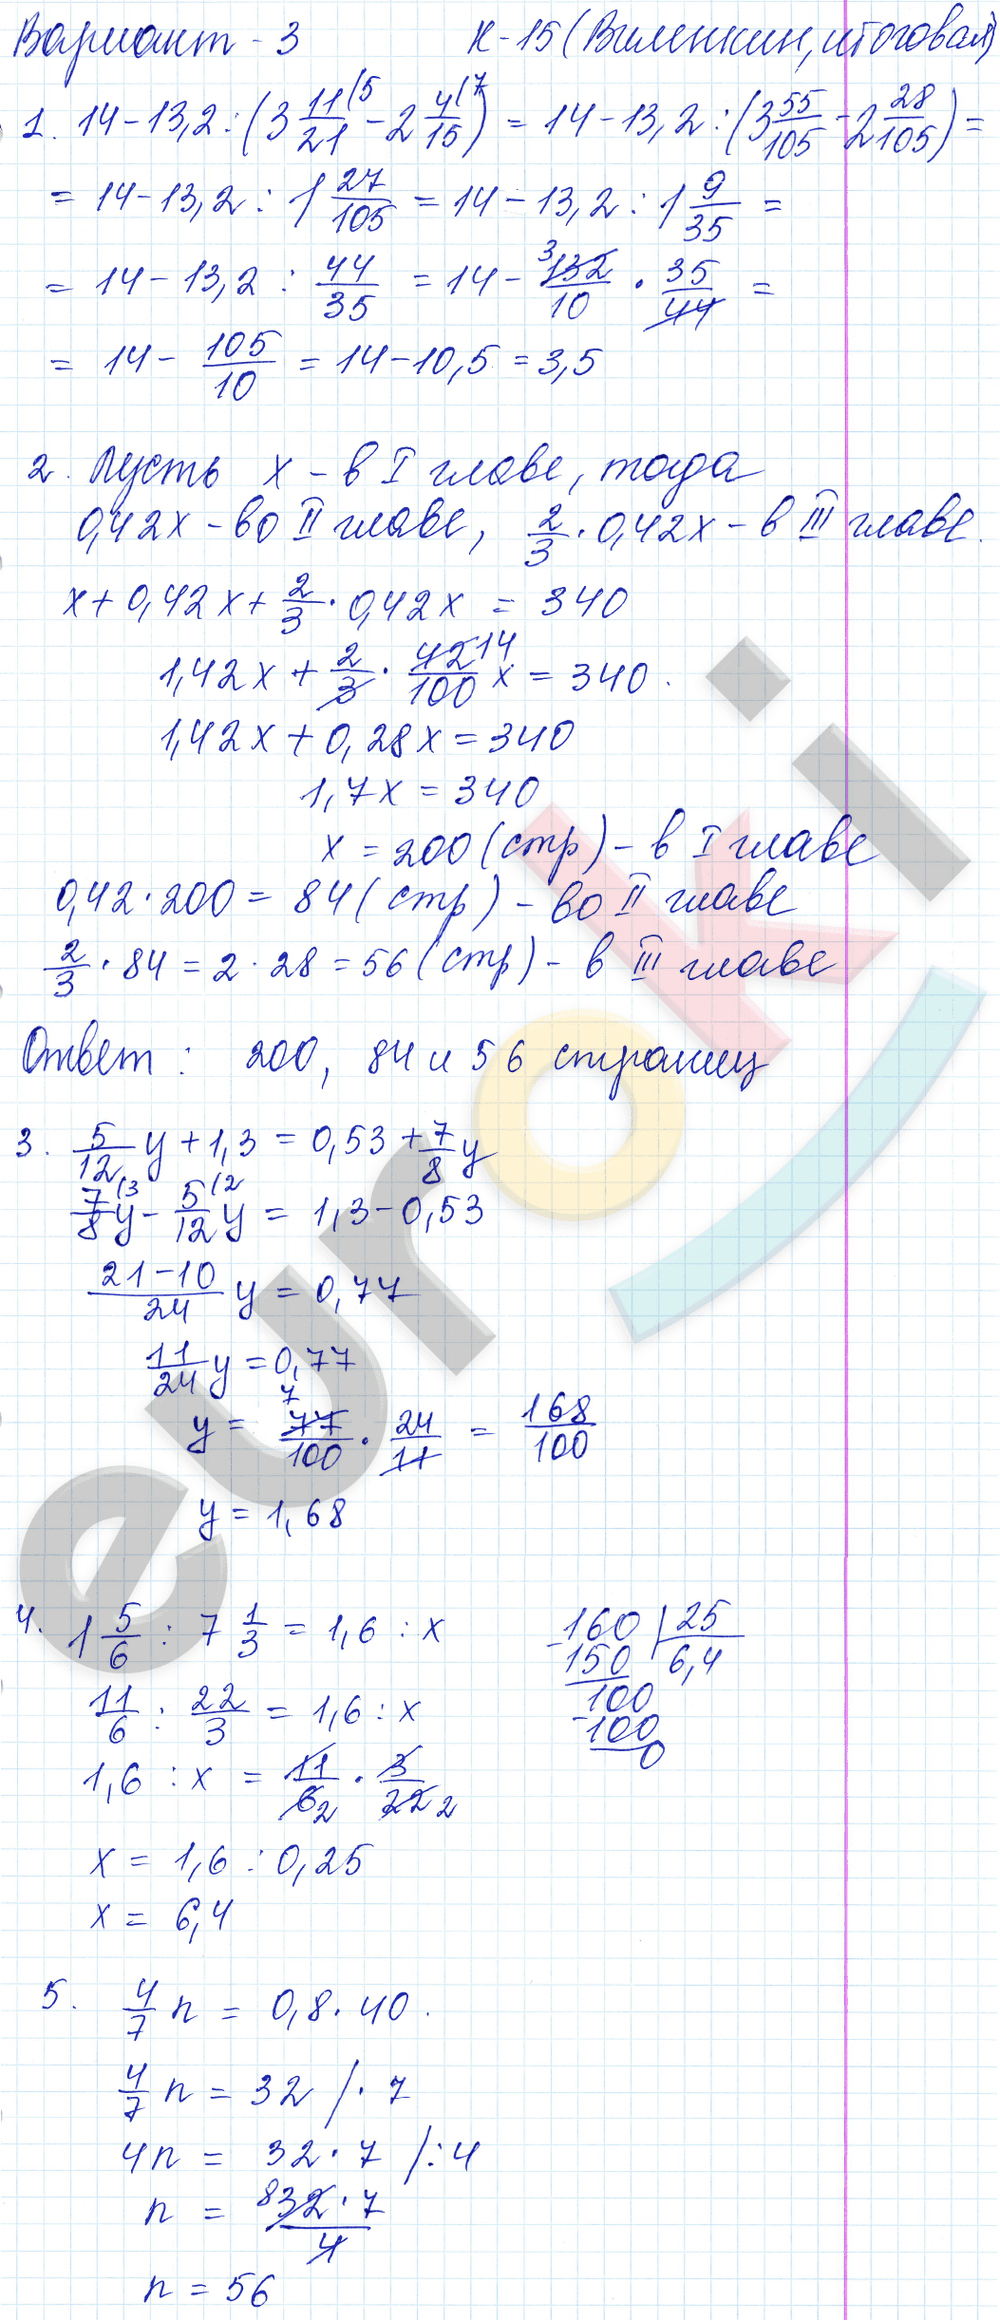 Вариант - 3 К-15 (Виленкин, итоговая)
1. 14 - 13,2 : (3 11/21 (5 - 2 4/15 (7) = 14 - 13,2 : (3 55/105 - 2 28/105) =
= 14 - 13,2 : 1 27/105 = 14 - 13,2 : 1 9/35 =
= 14 - 13,2 : 44/35 = 14 - 3 132/10 · 35/44 =
= 14 - 105/10 = 14 - 10,5 = 3,5
2. Пусть x - в I главе, тогда
0,42x - во II главе, 2/3 · 0,42x - в III главе.
x + 0,42x + 2/3 · 0,42x = 340
1,42x + 2/3 · 42 14/100 x = 340.
1,42x + 0,28x = 340
1,7x = 340
x = 200 (стр) - в I главе
0,42 · 200 = 84 (стр) - во II главе
2/3 · 84 = 2 · 28 = 56 (стр) - в III главе
Ответ: 200, 84 и 56 страниц
3. 5/12 y + 1,3 = 0,53 + 7/8 y
7/8 (3 y - 5/12 (2 y = 1,3 - 0,53
21-10/24 y = 0,77
11/24 y = 0,77
y = 7 77/100 · 24/11 = 168/100
y = 1,68
4. 1 5/6 : 7 1/3 = 1,6 : x
11/6 : 22/3 = 1,6 : x
1,6 : x = 11/6 2 · 3/22 2
x = 1,6 : 0,25
x = 6,4
-160 | 25
150 6,4
100
-100
0
5. 4/7 n = 0,8 · 40.
4/7 n = 32 / · 7
4n = 32 · 7 / : 4
n = 8 32 · 7/4
n = 56
euroki